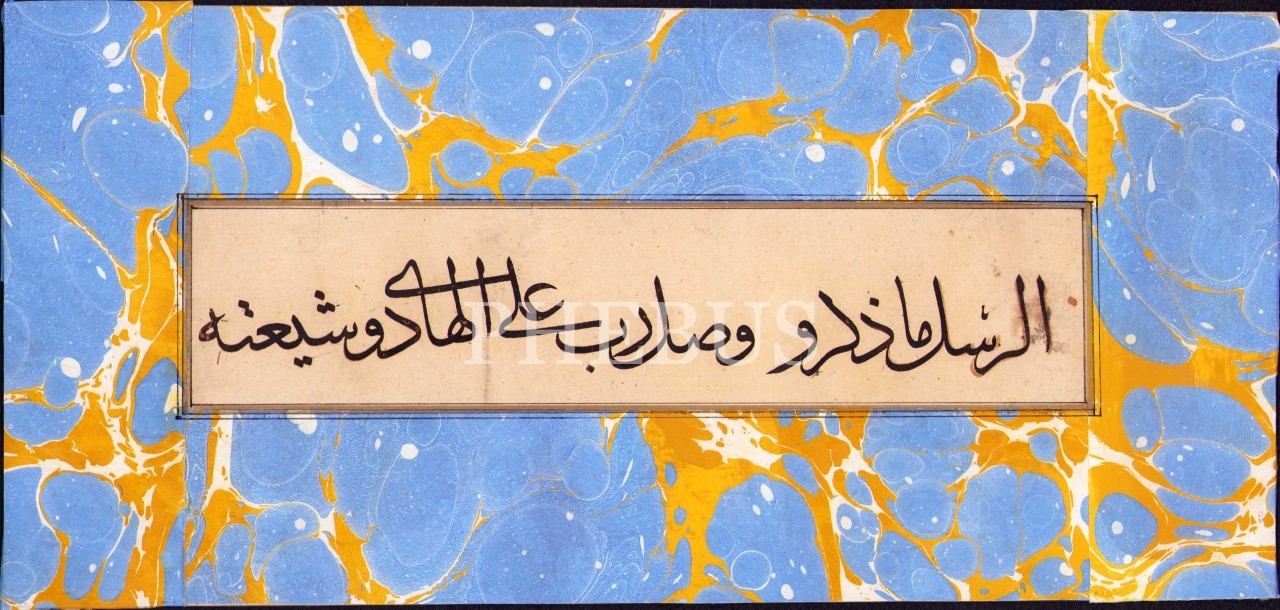 الرسل ما ذكرو وصل رب على الهادى وشيعته
PHEBUS